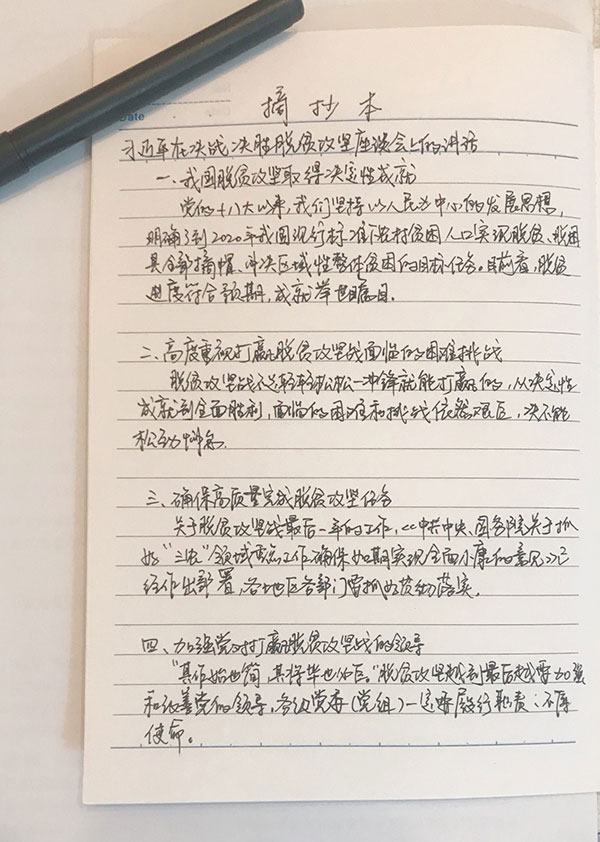 Date
摘抄本
习近平在决战决胜脱贫攻坚座谈会上的讲话
一、我国脱贫攻坚取得决定性成就
党的十八大以来，我们坚持以人民为中心的发展思想，
明确了到2020年我国现行标准下农村贫困人口实现脱贫、贫困
县全部摘帽、解决区域性整体贫困的目标任务。目前看，脱贫
进度符合预期，成就举世瞩目。
二、高度重视打赢脱贫攻坚战面临的困难挑战
脱贫攻坚战不是轻轻松松一冲锋就能打赢的，从决定性
成就到全面胜利，面临的困难和挑战依然艰巨，决不能
松劲懈怠。
三、确保高质量完成脱贫攻坚任务
关于脱贫攻坚战最后一年的工作，《中共中央、国务院关于抓
好“三农”领域重点工作确保如期实现全面小康的意见》已
经作出部署，各地区各部门要抓好贯彻落实。
四、加强党对打赢脱贫攻坚战的领导
“其作始也简，其将毕也必巨。”脱贫攻坚越到最后越要加强
和改善党的领导，各级党委（党组）一定要履行职责：不辱
使命。